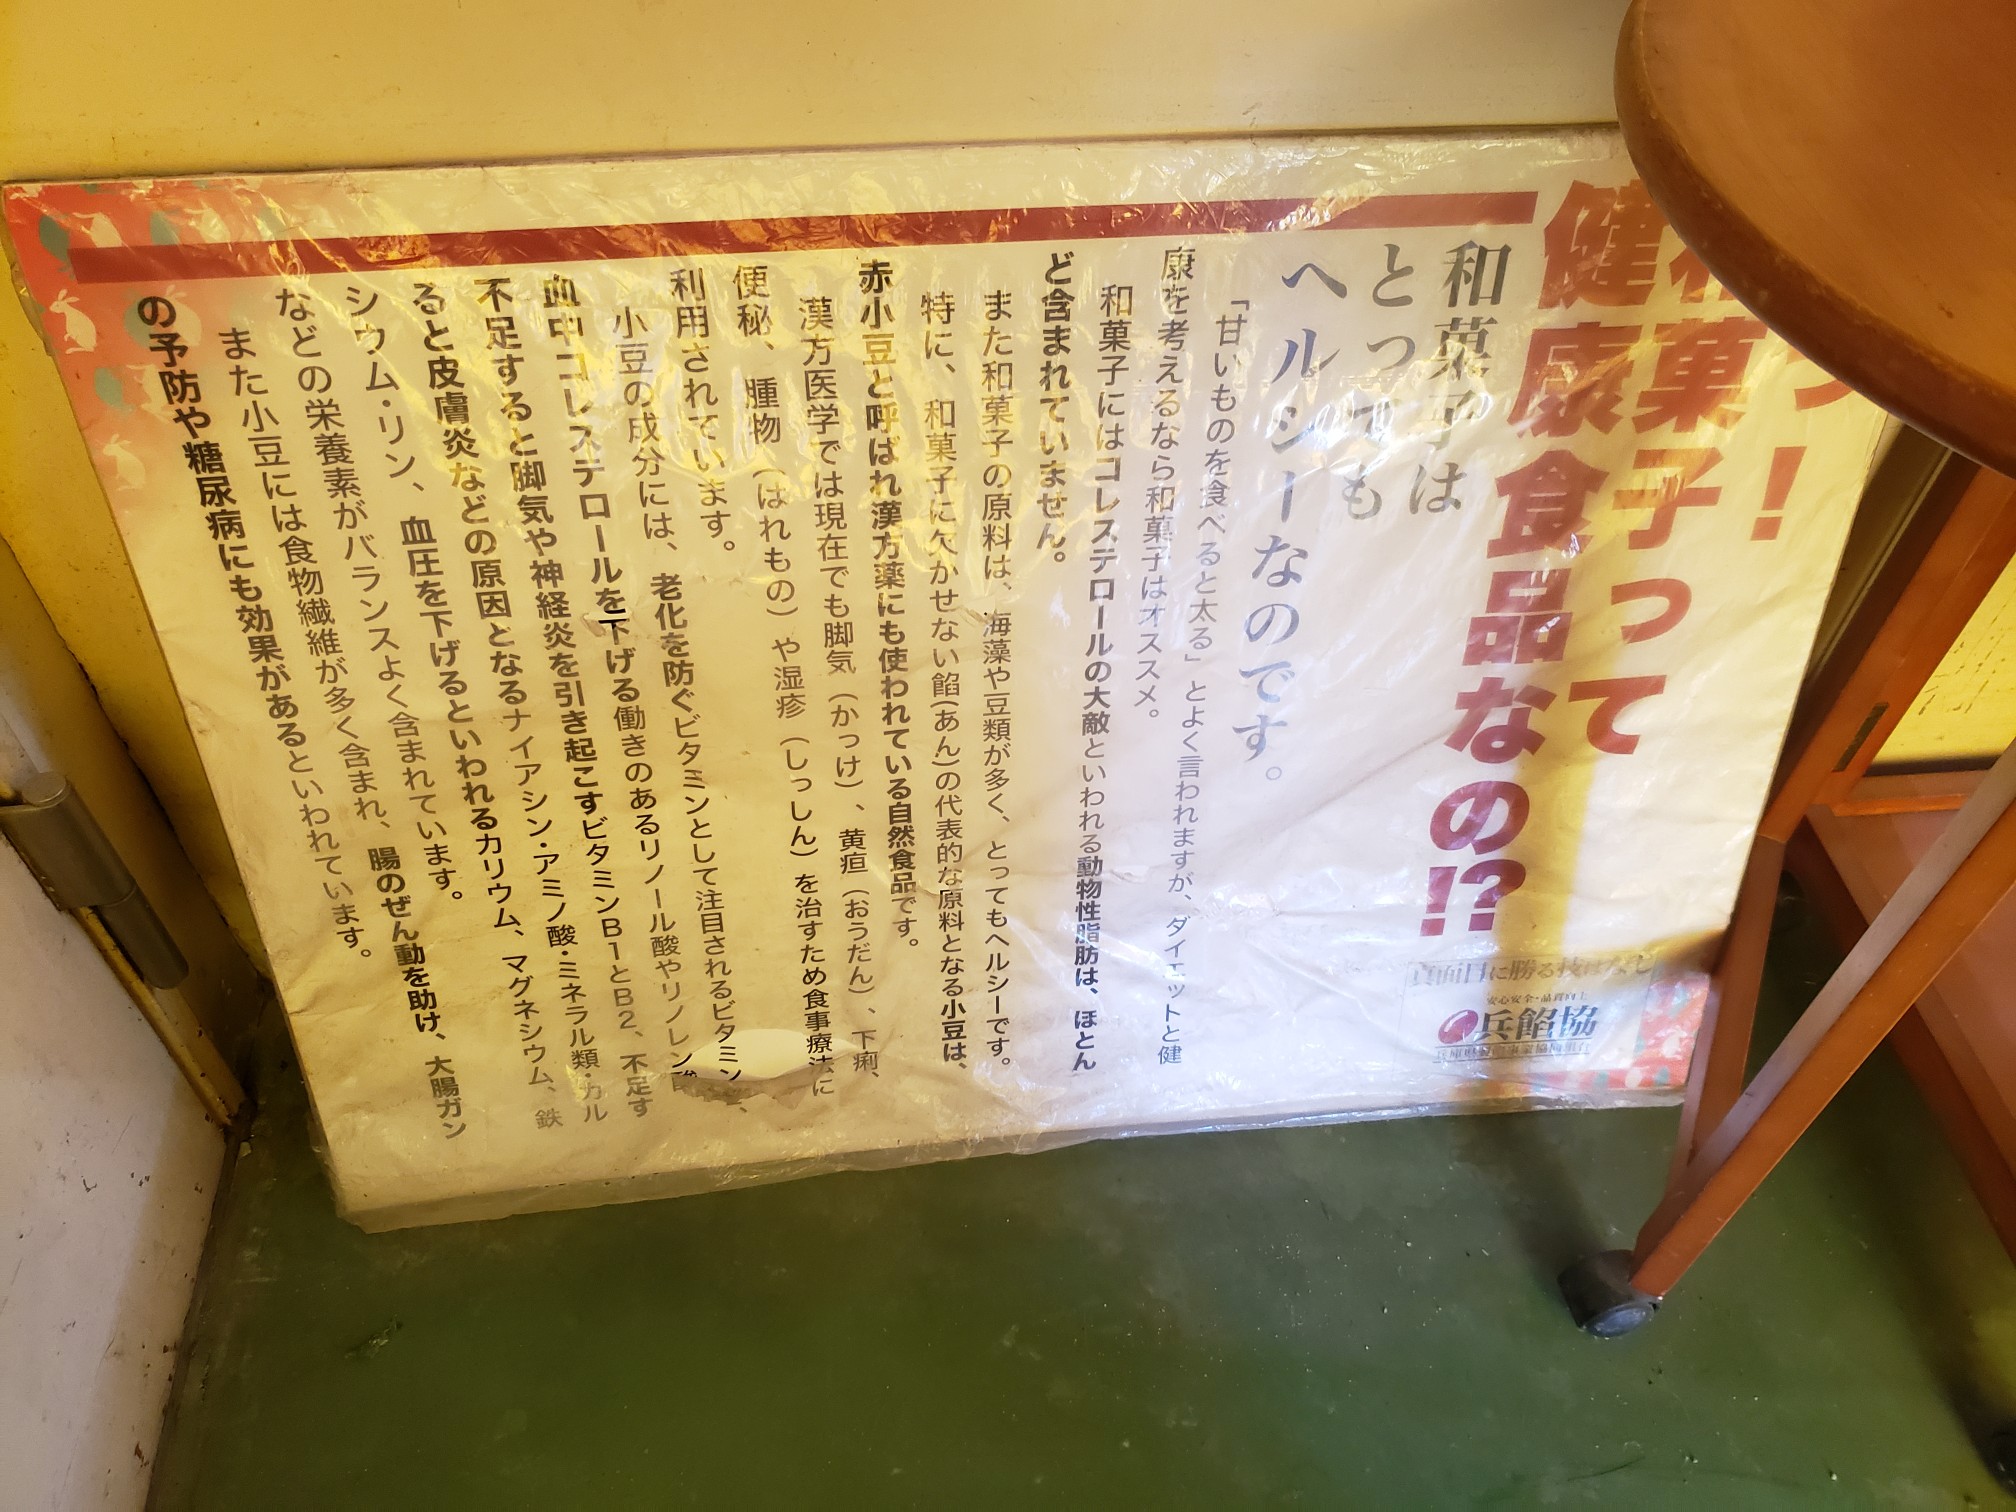 っ!
和菓子って
健康食品なの!?
和菓子は
とっても
ヘルシーなのです。
「甘いものを食べると太る」とよく言われますが、ダイエットと健
康を考えるなら和菓子はオススメ。
和菓子にはコレステロールの大敵といわれる動物性脂肪は、ほとん
ど含まれていません。
また和菓子の原料は、海藻や豆類が多く、とってもヘルシーです。
特に、和菓子に欠かせない餡(あん)の代表的な原料となる小豆は、
赤小豆と呼ばれ漢方薬にも使われている自然食品です。
漢方医学では現在でも脚気（かっけ）、黄疸（おうだん）、下痢、
便秘、腫物（はれもの）や湿疹（しっしん）を治すため食事療法に
利用されています。
小豆の成分には、老化を防ぐビタミンとして注目されるビタミン、
血中コレステロールを下げる働きのあるリノール酸やリノレン酸
不足すると脚気や神経炎を引き起こすビタミンB1とB2、不足す
ると皮膚炎などの原因となるナイアシン・アミノ酸・ミネラル類・カル
シウム・リン、血圧を下げるといわれるカリウム、マグネシウム、鉄
などの栄養素がバランスよく含まれています。
また小豆には食物繊維が多く含まれ、腸のぜん動を助け、大腸ガン
の予防や糖尿病にも効果があるといわれています。
真面目に勝る技はなし
安心安全・品質向上
兵餡協